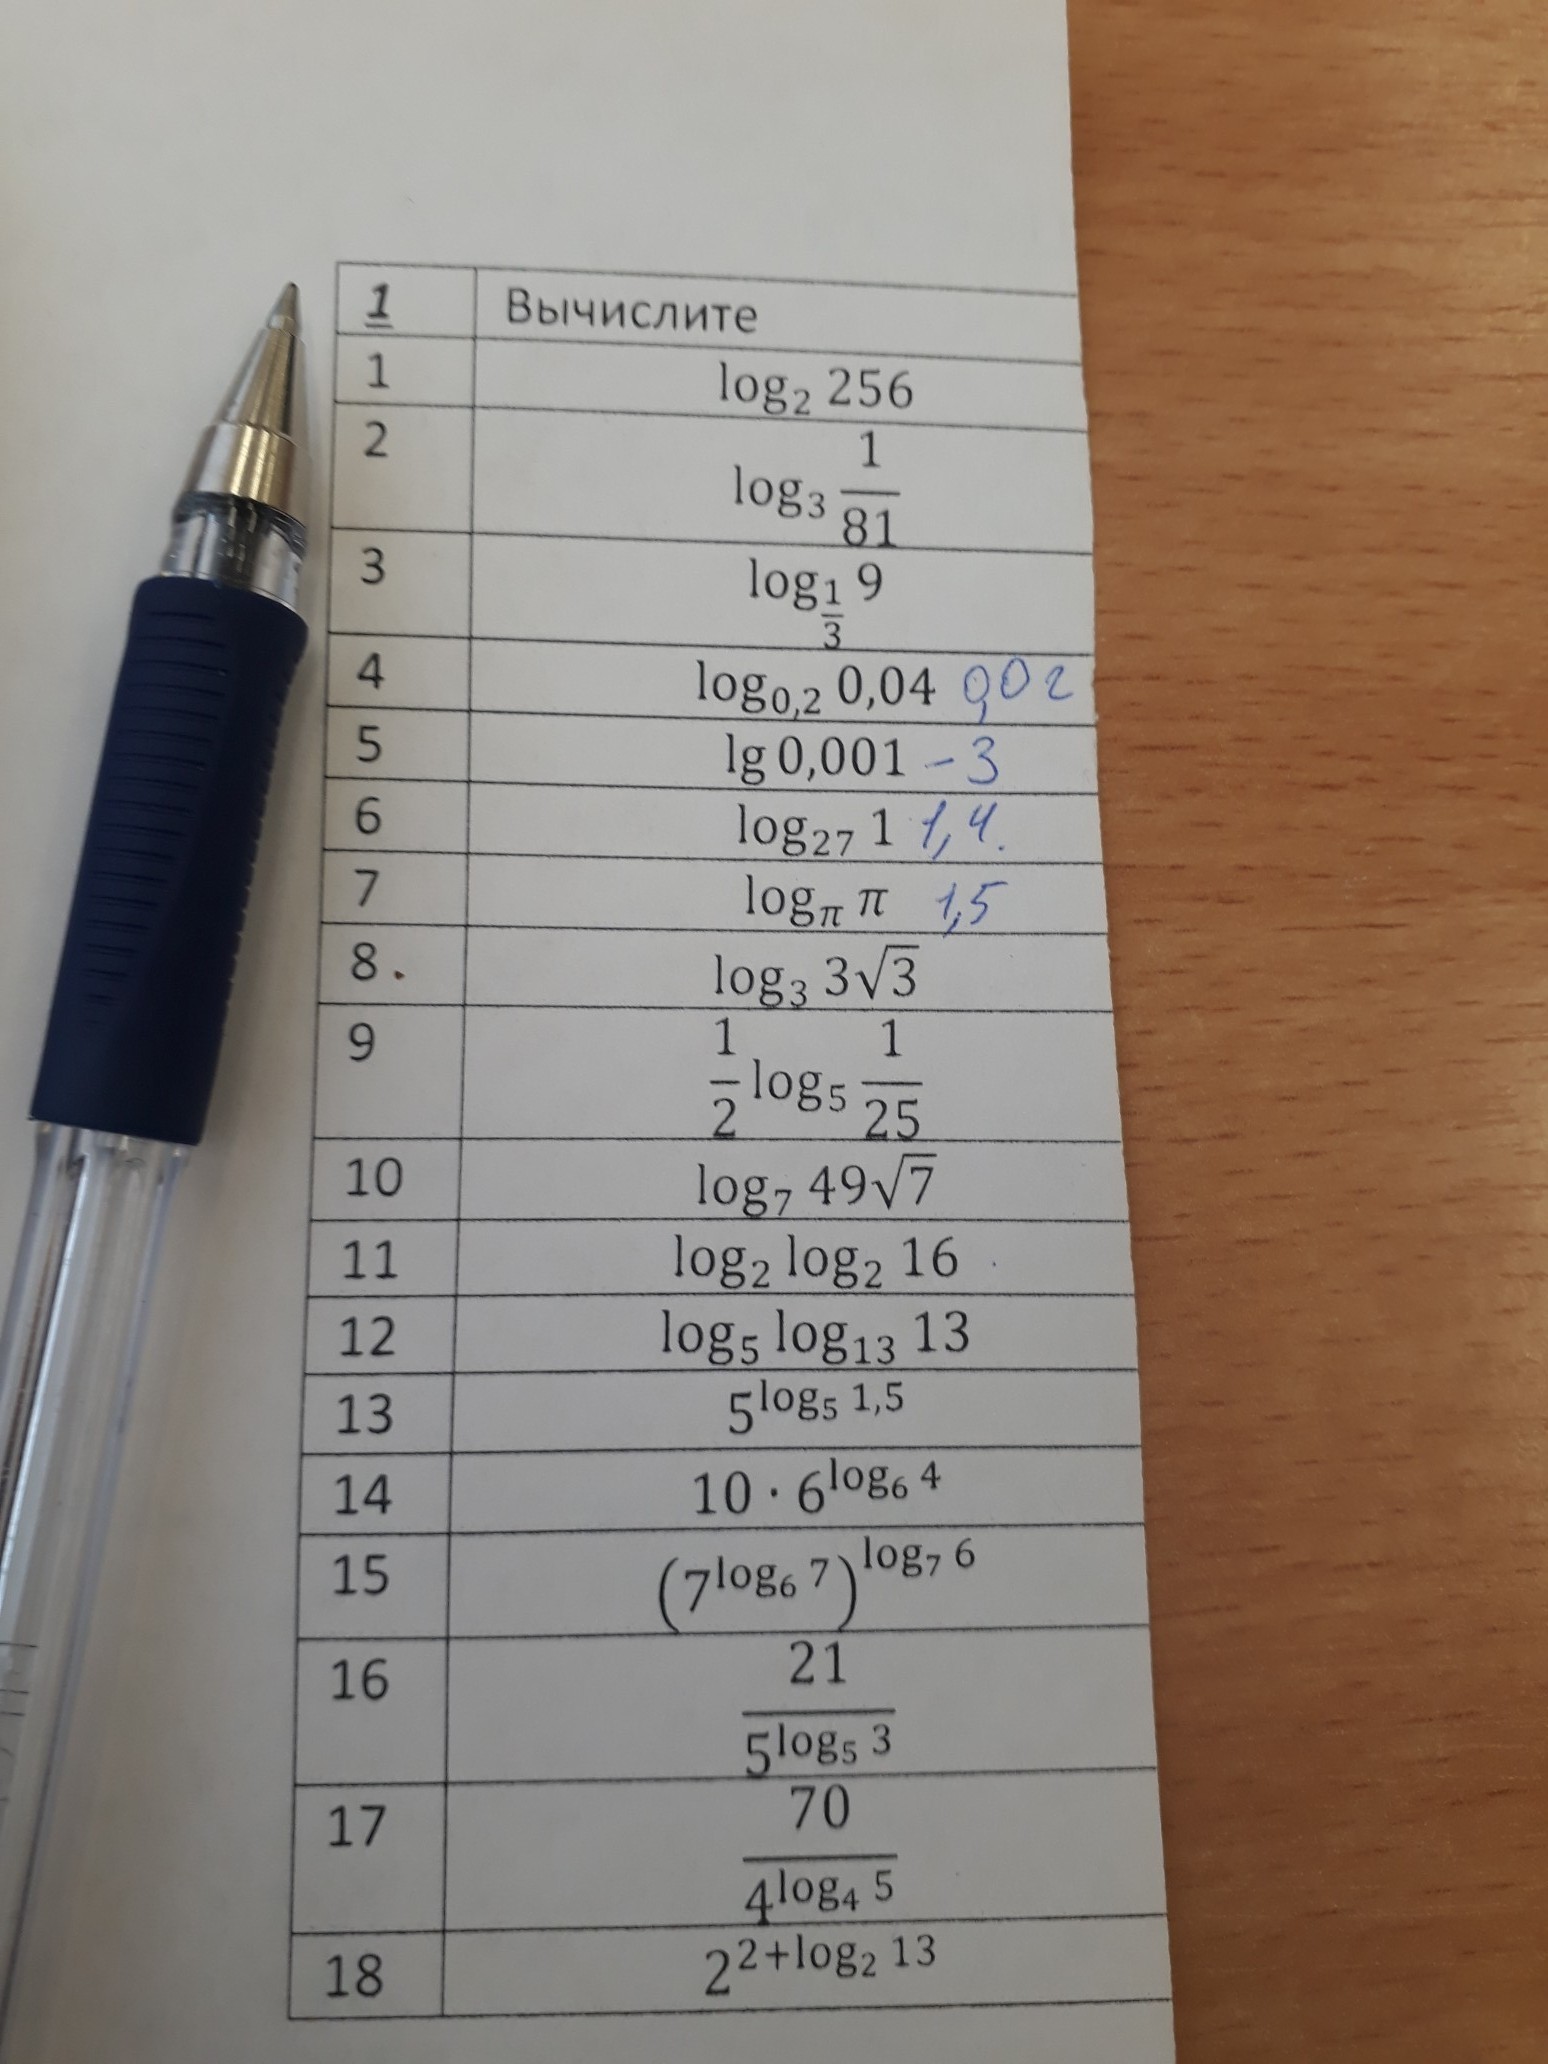 1 Вычислите
1 log₂ 256
2 log₃ 1/81
3 log_{1/3} 9
4 log₀,₂ 0,04 0,02
5 lg 0,001 – 3
6 log₂₇ 1 1,4.
7 log_π π 1,5
8. log₃ 3√3
9 1/2 log₅ 1/25
10 log₇ 49√7
11 log₂ log₂ 16
12 log₅ log₁₃ 13
13 5^{log₅ 1,5}
14 10 · 6^{log₆ 4}
15 (7^{log₆ 7})^{log₇ 6}
16 21/5^{log₅ 3}
17 70/4^{log₄ 5}
18 2^{2+log₂ 13}